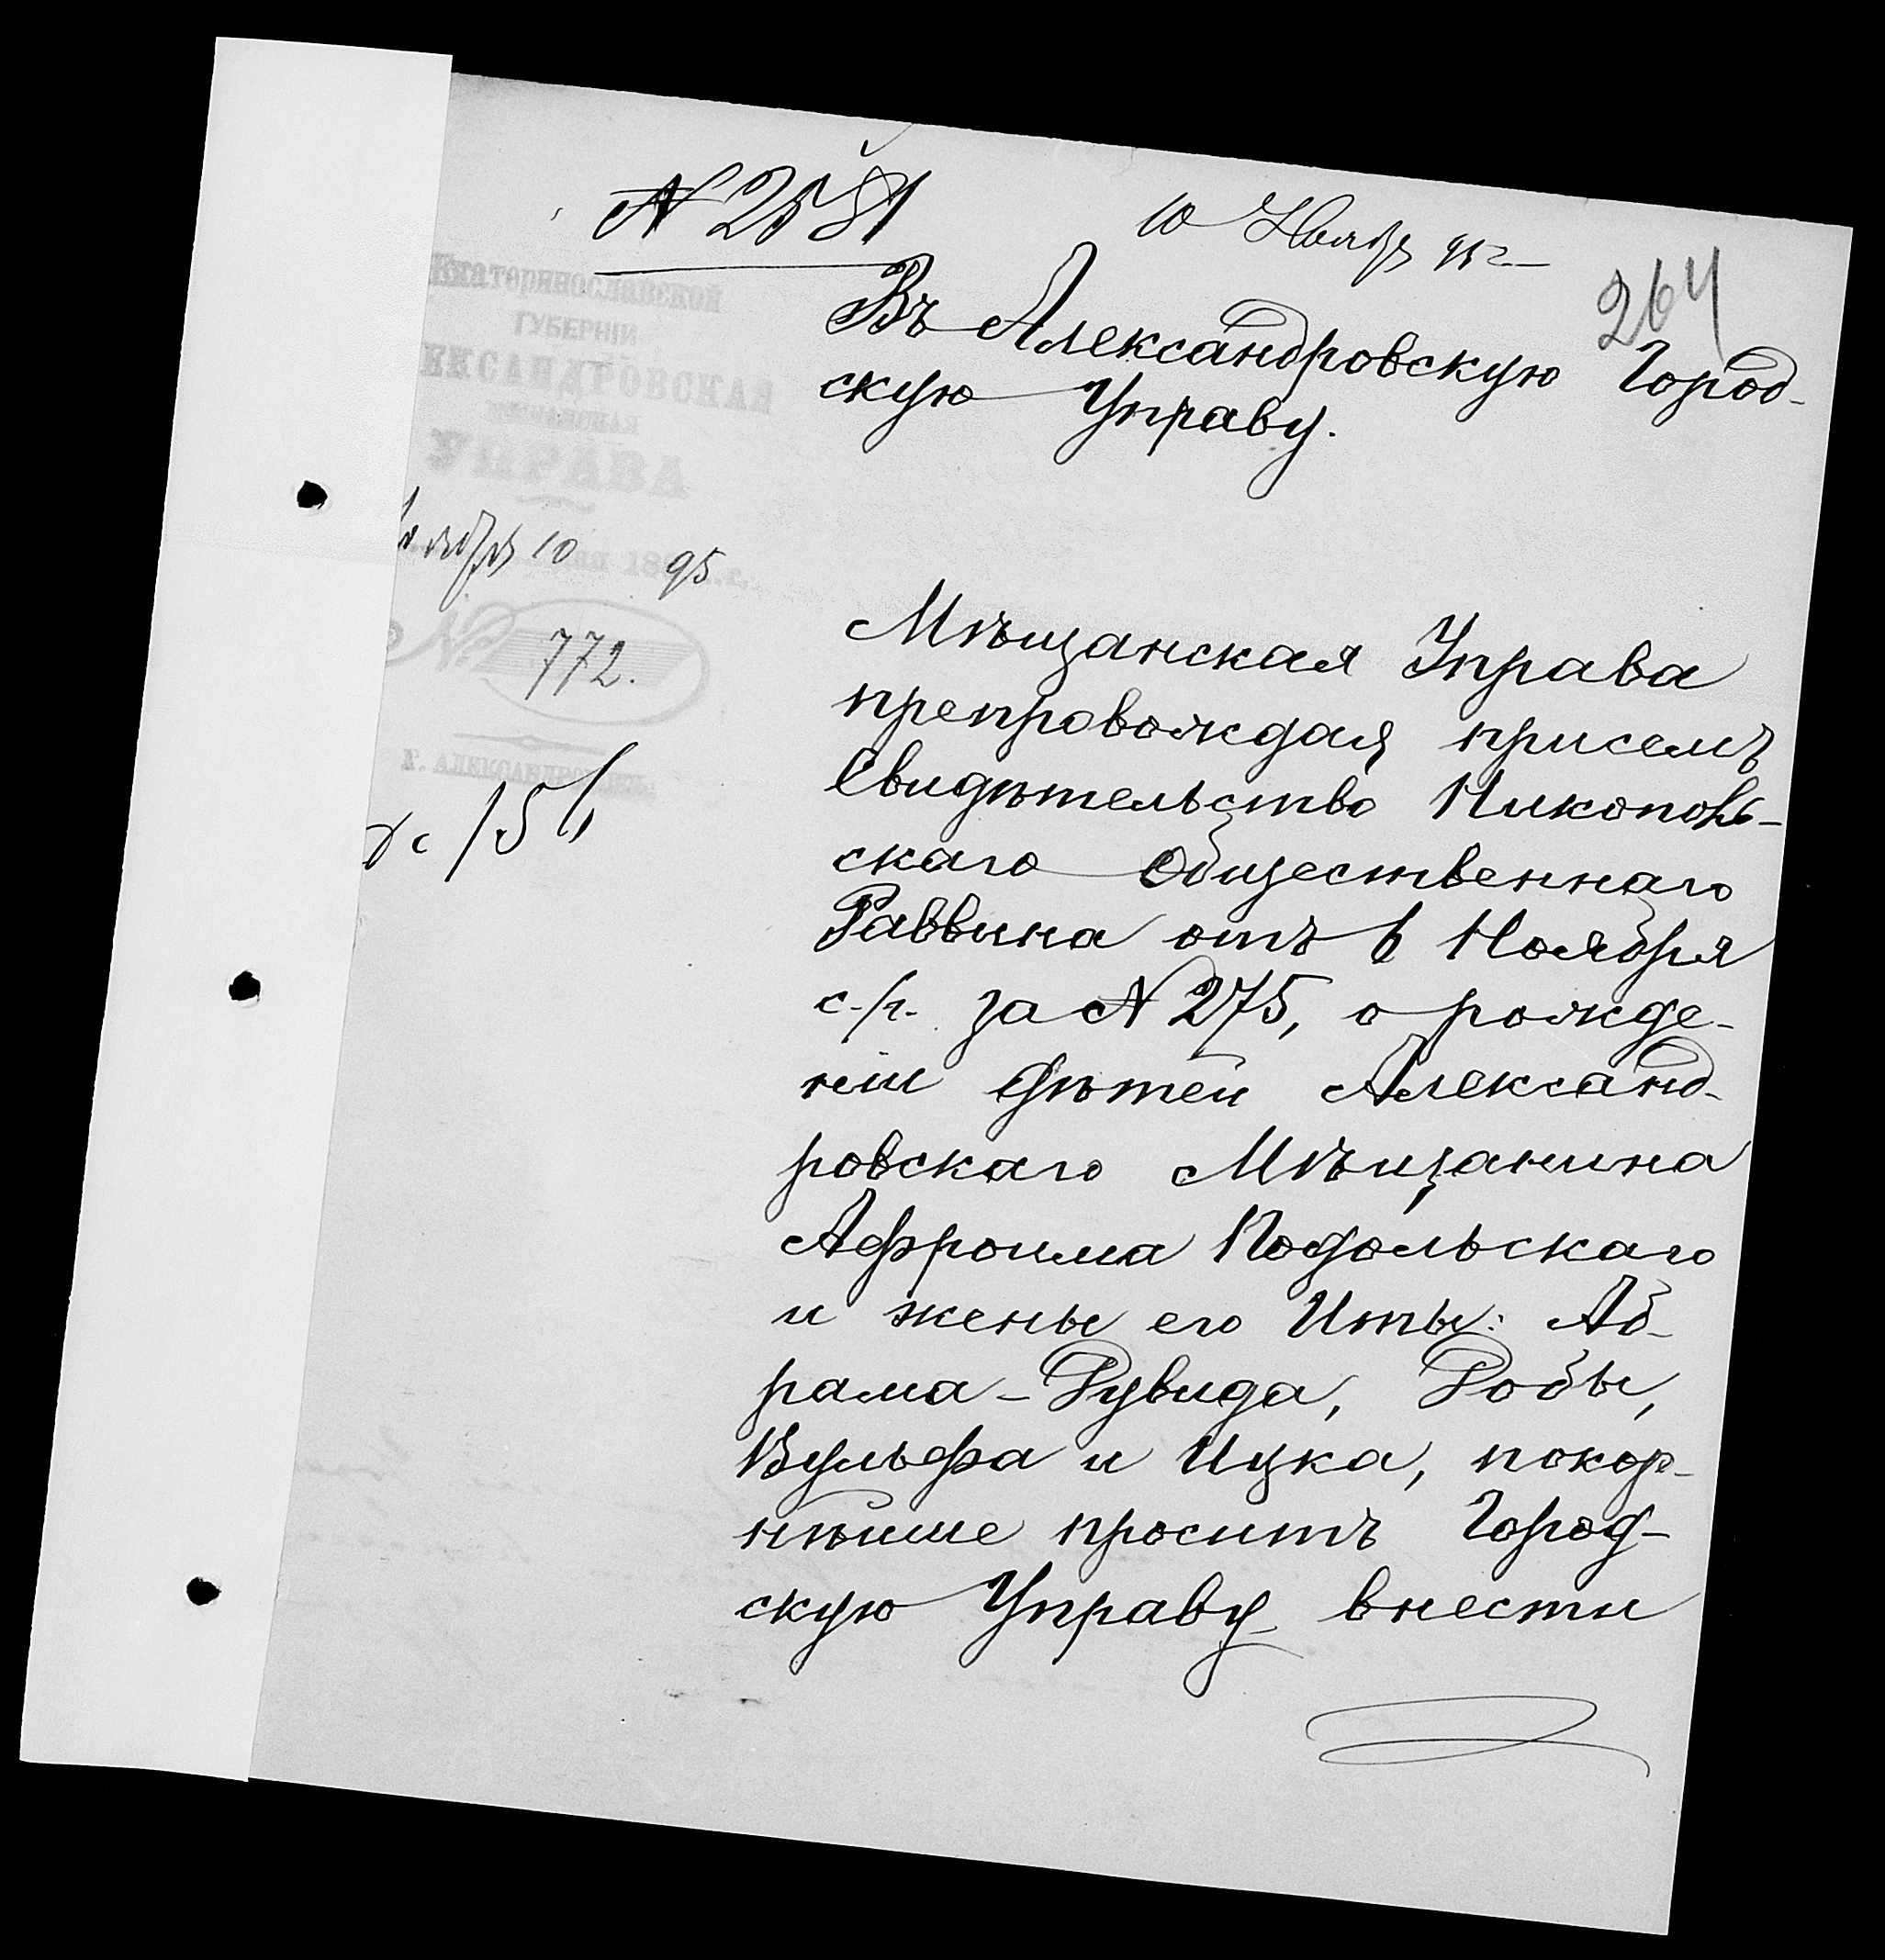 № 2581
10 Ноября 95 г.
264
Екатеринославской
ГУБЕРНІИ
ЕКСАНДРОВСКАЯ
МѢЩАНСКАЯ
УПРАВА
Въ Александровскую Город-
скую Управу.
оября 10 дня 1895 г.
№ 772.
Г. АЛЕКСАНДРОВСКЪ.
Мѣщанская Управа
препровождая присемъ
Свидѣтельство Никополь-
скаго Общественнаго
Раввина отъ 6 Ноября
с./г. за № 275, о рожде-
ніи дѣтей Александ-
ровскаго Мѣщанина
Афроима Подольскаго
и жены его Иты: Аб-
рама-Рувида, Робы,
Вульфа и Ицка, покор-
нѣйше проситъ Город-
скую Управу внести